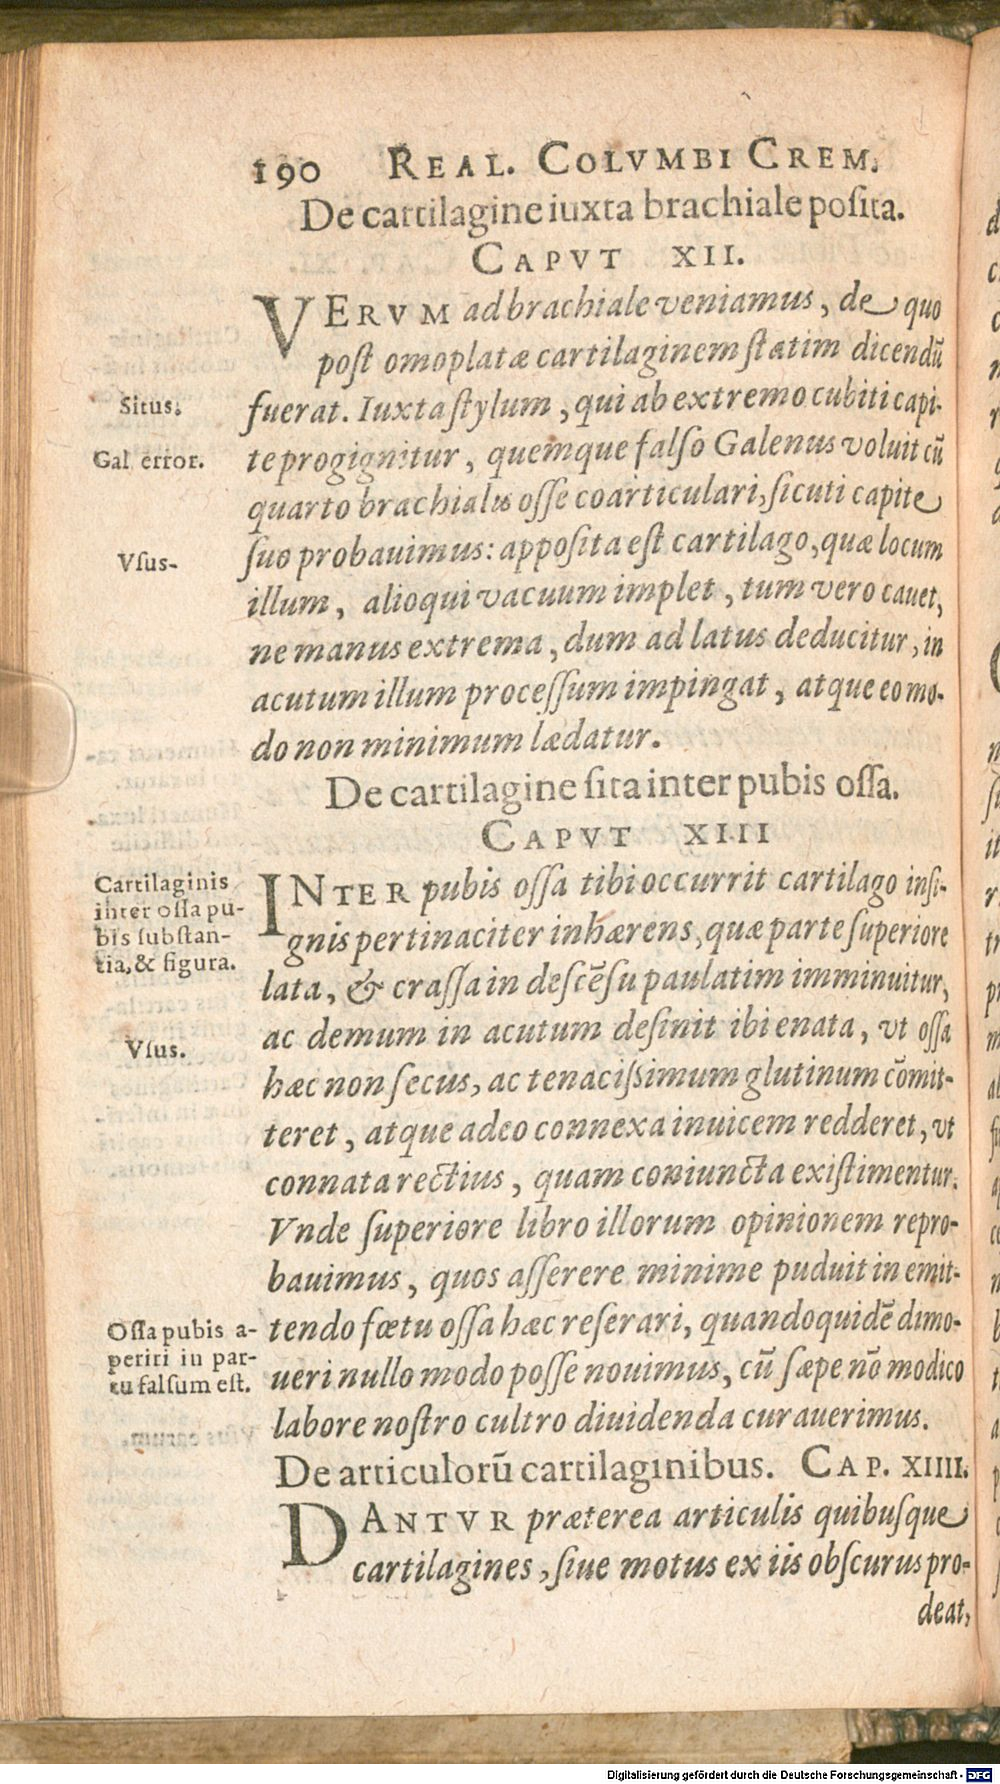 190 REAL. COLVMBI CREM.
De cartilagine iuxta brachiale posita.
CAPVT XII.
VERVM ad brachiale veniamus, de quo
post omoplatæ cartilaginem statim dicendũ
Situs.
fuerat. Iuxta stylum, qui ab extremo cubiti capi-
Gal error.
te progignitur, quemque falso Galenus voluit cũ
quarto brachialis osse coarticulari, sicuti capite
Vsus-
suo probauimus: apposita est cartilago, quæ locum
illum, alioqui vacuum implet, tum vero cauet,
ne manus extrema, dum ad latus deducitur, in
acutum illum processum impingat, atque eo mo-
do non minimum lædatur.
De cartilagine sita inter pubis ossa.
CAPVT XIII
Cartilaginis
inter ossa pu-
bis substan-
tia, & figura.
INTER pubis ossa tibi occurrit cartilago insi-
gnis pertinaciter inhærens, quæ parte superiore
lata, & crassa in descẽsu paulatim imminuitur,
ac demum in acutum desinit ibi enata, vt ossa
Vsus.
hæc non secus, ac tenacissimum glutinum cõmit-
teret, atque adeo connexa inuicem redderet, vt
connata rectius, quam coniuncta existimentur.
Vnde superiore libro illorum opinionem repro-
bauimus, quos asserere minime puduit in emit-
Ossa pubis a-
periri in par-
tu falsum est.
tendo fœtu ossa hæc reserari, quandoquidẽ dimo-
ueri nullo modo posse nouimus, cũ sæpe nõ modico
labore nostro cultro diuidenda curauerimus.
De articulorũ cartilaginibus. CAP. XIIII.
DANTVR præterea articulis quibusque
cartilagines, siue motus ex iis obscurus pro-
deat,
Digitalisierung gefördert durch die Deutsche Forschungsgemeinschaft - DFG